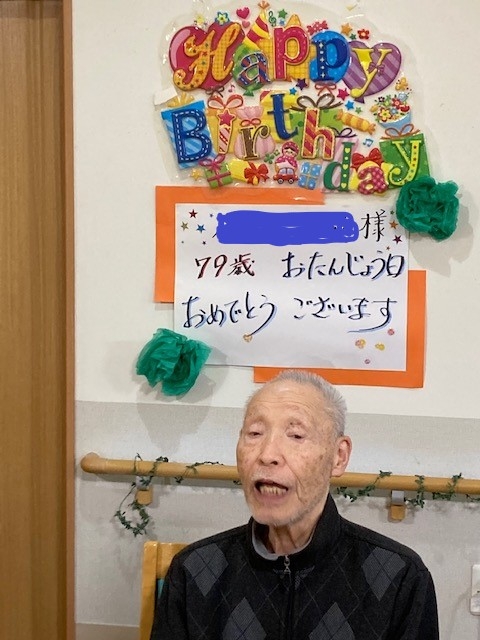 Happy
Birthday
様
79歳 おたんじょう日
おめでとう ございます